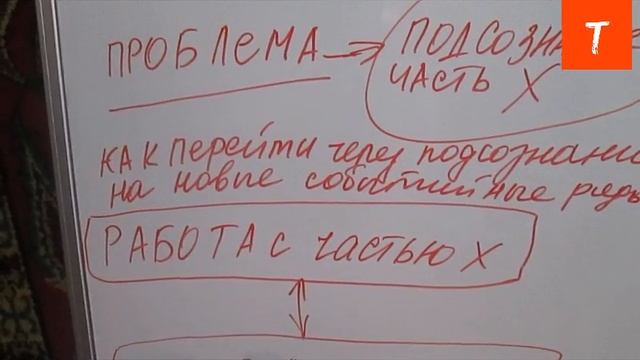 T
ПРОБЛЕМА → ПОДСОЗНА
ЧАСТЬ X
КАК ПЕРЕЙТИ через подсознани
на новые событийные ряды
РАБОТА С ЧАСТЬЮ X